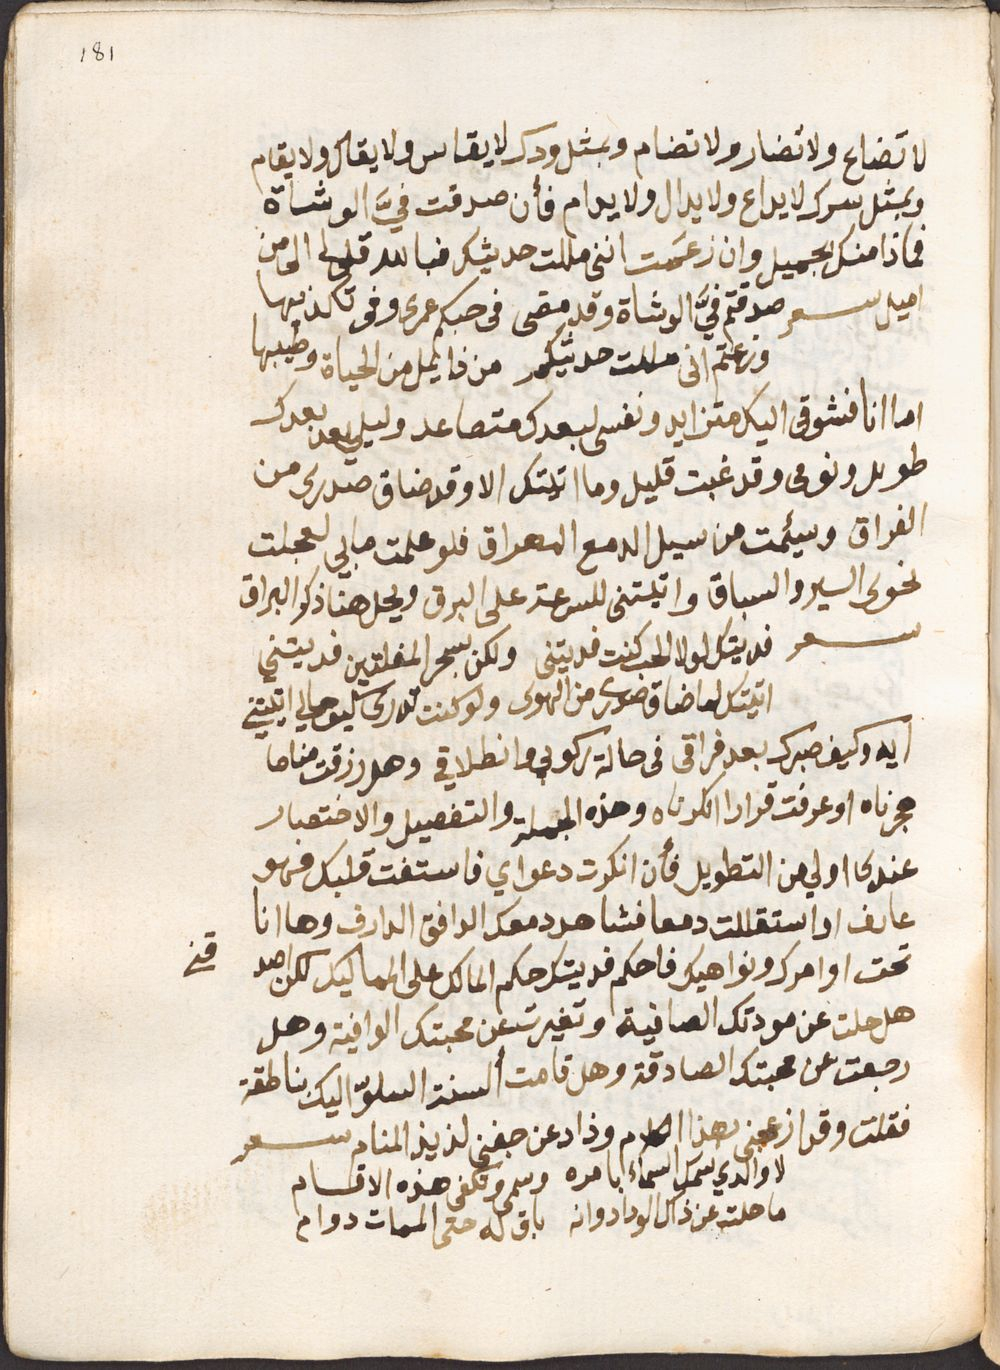 181
لا تضاع ولا تضار ولا تضام وبمثل ودك لا يقاس ولا يقال ولا يقام
وبمثل سرك لا يداع ولا يدال ولا يدام فأن صدقت فيَّ الوشاة
فماذا منك الجميل وان زعمت انني مللت حديثك فبالله قلي الى من
اميل شعر صدقتم فيَّ الوشاة وقد مضى في حبكم عمري وفي تكذيبها
وزعمتم اني مللت حديثكم من ذا يمل من الحياة وطيبها
اما انا فشوقي اليك متزايد ونفسي لبعدك متصاعد وليلي بعد بعدك
طويل ونومي وقد غبت قليل وما اتيتك الا وقد ضاق صدري من
الفراق وسيئمت من سيل الدمع المهراق فلو علمت مابي لعجلت
نحوى السير والسباق واتيتني للسرعة على البرق ويحل هنا ذكر البراق
شعر فديتك لولا الحب كنت فديتني ولكن بسحر المقلتين فديتني
اتيتك لما ضاق صدري من الهوى ولو كنت تدري كيف حالي اتيتني
ايه وكيف صبرك بعد فراقي في حالة ركوبي وانطلاقي وهل رزقت مناما
حجزناه او عرفت قرارا انكرناه وهذه الجملة والتفصيل والاختصار
عندك اولي من التطويل فأن انكرت دعواي فاستفت قلبك فهو
عارف او استقللت دمعا فشاهد دمعك الدافق الدارف وها انا
تحت اوامرك ونواهيك فاحكم فديتك حكم المالك على المماليك لكن اصد
قني
هل حلت عن مودتك الصافية وتغيرت عن محبتك الوافية وهل
رجعت عن محبتك الصادقة وهل قامت ألسنة السلوّ اليك بناطقة
فقلت وقد ازعجني بهذا الكلام وذاد عن جفني لذيذ المنام شعر
لا والذي سمك السماء بامره وسمي وتكفى هذه الاقسام
ما حلت عن ذاك الوداد وانه باق له حتى الممات دوام